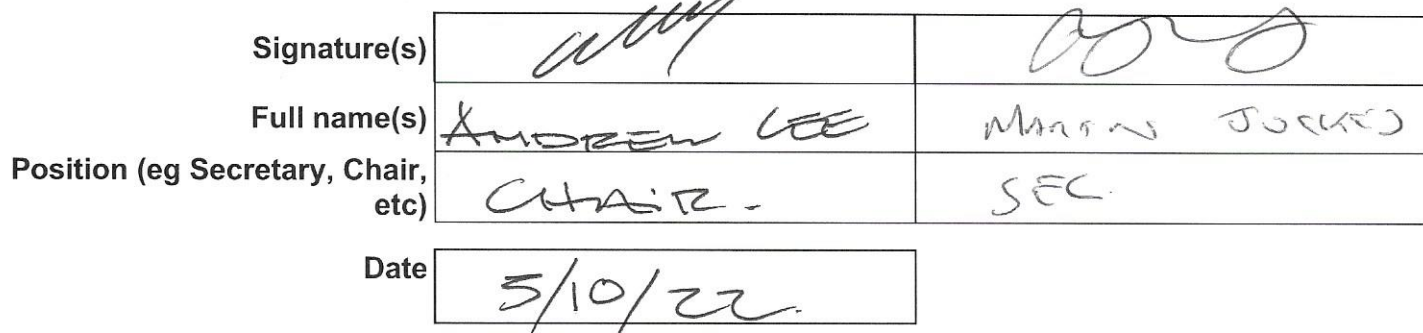 Signature(s)
Full name(s) ANDREW LEE MARTIN
Position (eg Secretary, Chair, etc) CHAIR. SEC.
Date 5/10/22.